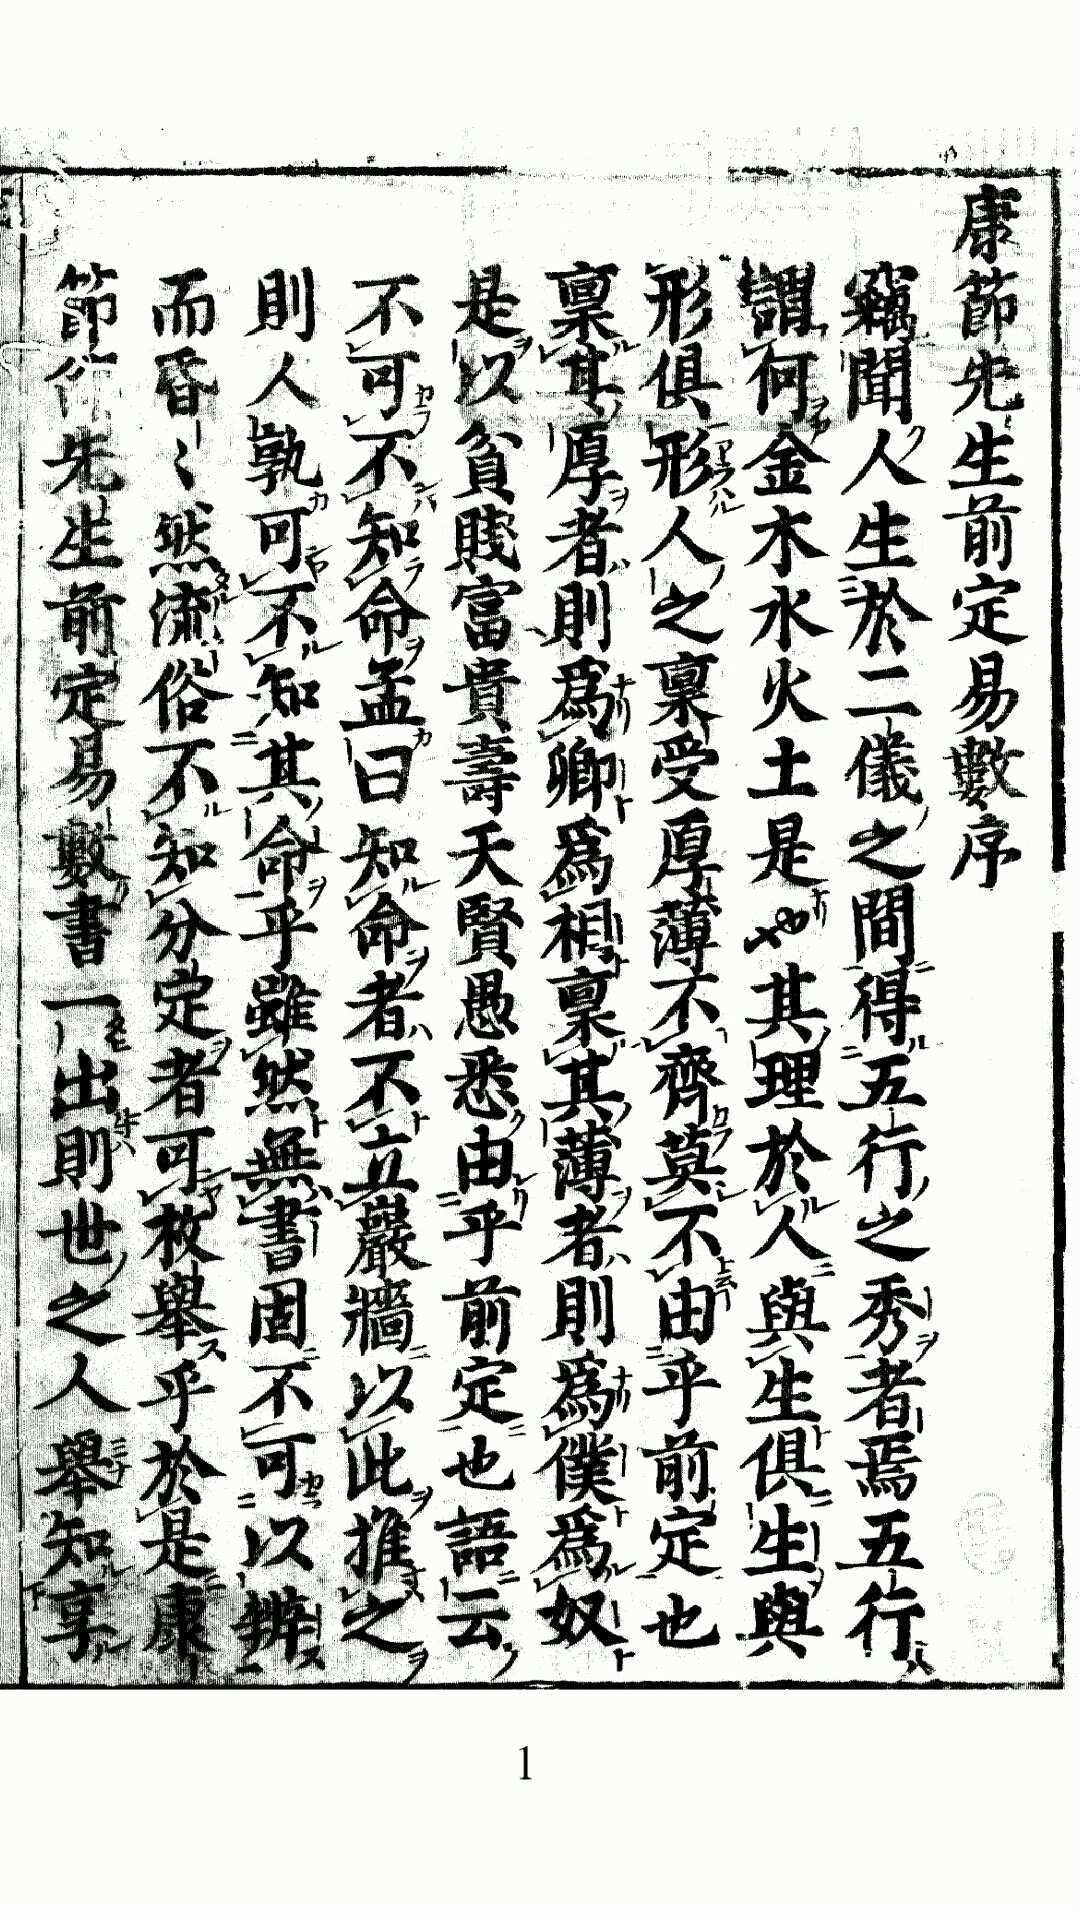 康節先生前定易數序
竊聞人生於二儀之間得五行之秀者焉五行
謂何金木水火土是也其理於人與生俱生與
形俱形人之稟受厚薄不齊莫不由乎前定也
稟其厚者則爲卿爲相稟其薄者則爲僕爲奴
是以貧賤富貴壽夭賢愚悉由乎前定也語云
不可不知命孟曰知命者不立巖牆以此推之
則人孰可不知其命乎雖然無書固不可以辨
而昏〻然流俗不知分定者可枚舉乎於是康
節先生前定易數書一出則世之人舉知享
1